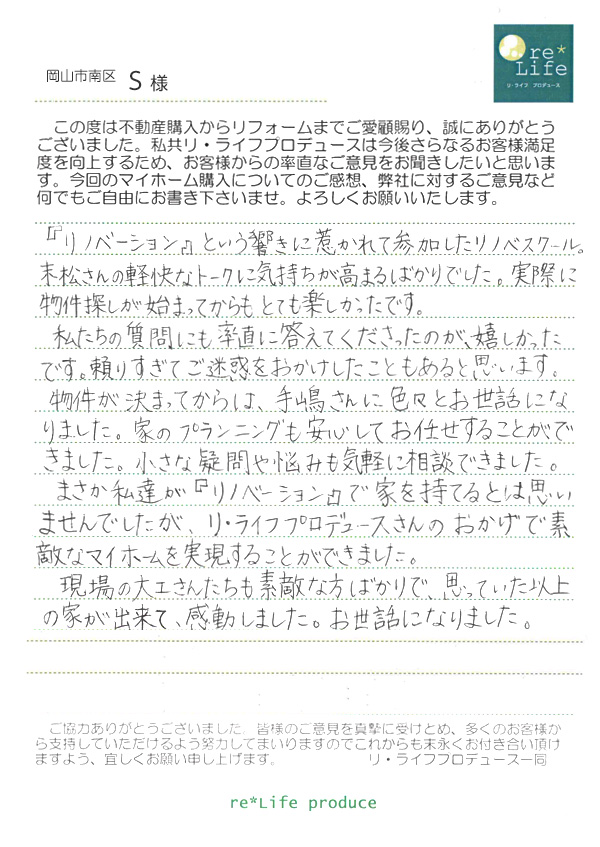 re*
Life
リ・ライフ プロデュース
岡山市南区 S 様
この度は不動産購入からリフォームまでご愛顧賜り、誠にありがとう
ございました。私共リ・ライフプロデュースは今後さらなるお客様満足
度を向上するため、お客様からの率直なご意見をお聞きしたいと思いま
す。今回のマイホーム購入についてのご感想、弊社に対するご意見など
何でもご自由にお書き下さいませ。よろしくお願いいたします。
『リノベーション』という響きに惹かれて参加したリノベスクール。
末松さんの軽快なトークに気持ちが高まるばかりでした。実際に
物件探しが始まってからもとても楽しかったです。
私たちの質問にも率直に答えてくださったのが、嬉しかった
です。頼りすぎてご迷惑をおかけしたこともあると思います。
物件が決まってからは、手嶋さんに色々とお世話にな
りました。家のプランニングも安心してお任せすることがで
きました。小さな疑問や悩みも気軽に相談できました。
まさか私達が『リノベーション』で家を持てるとは思い
ませんでしたが、リ・ライフプロデュースさんのおかげで素
敵なマイホームを実現することができました。
現場の大工さんたちも素敵な方ばかりで、思っていた以上
の家が出来て、感動しました。お世話になりました。
ご協力ありがとうございました。皆様のご意見を真摯に受けとめ、多くのお客様か
ら支持していただけるよう努力してまいりますのでこれからも末永くお付き合い頂け
ますよう、宜しくお願い申し上げます。 リ・ライフプロデュース一同
re*Life produce